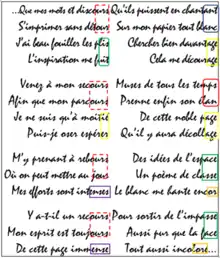 ...Que mes mots et discours
S'imprimer sans détour
J'ai beau fouiller les plis
L'inspiration me fuit
Qu'ils puissent en chantant
Sur mon papier tout blanc
Chercher bien davantage
Cela me décourage
Venez à mon secours
Afin que mon parcours
Je ne suis qu'à moitié
Puis-je oser espérer
Muses de tous les temps
Prenne enfin son élan
De cette noble page
Qu'il y aura décollage
M'y prenant à rebours
Où on peut mettre au jour
Mes efforts sont intenses
Des idées de l'espace
Un poème de classe
Le blanc me hante encor
Y a-t-il un recours
Mon esprit est toujours
De cette page immense
Pour sortir de l'impasse
Aussi pur que la face
Tout aussi incolore...